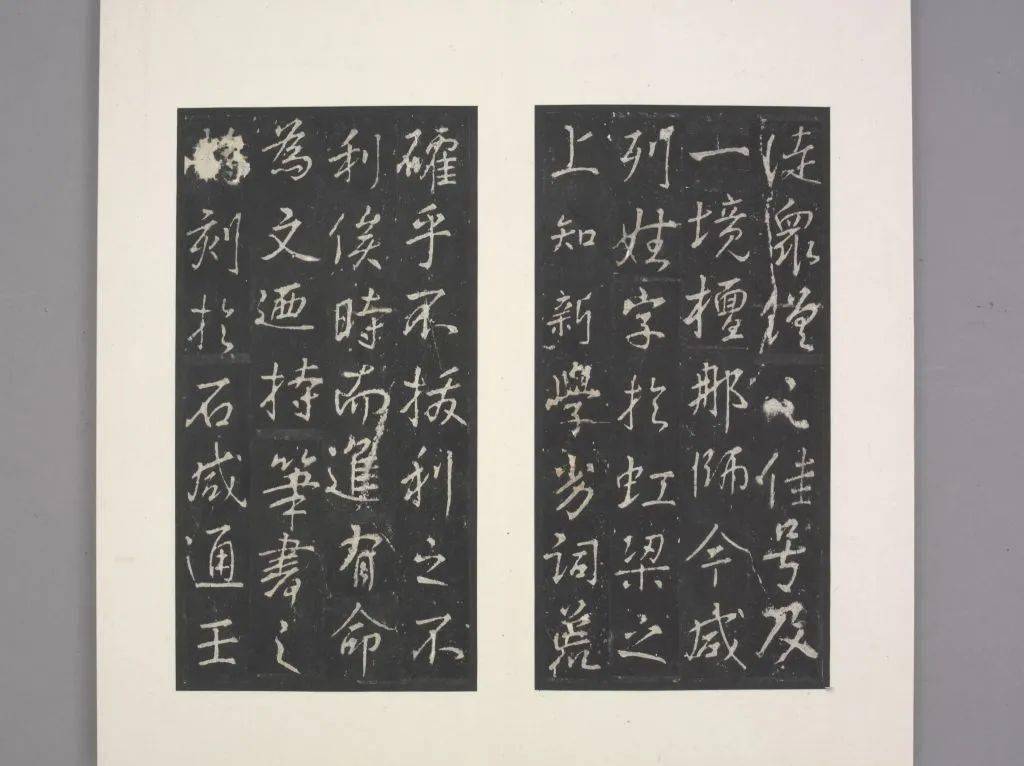 徒眾之佳号及
一境檀那師今咸
列姓字於虹梁之
上知新學劣詞荒
確乎不拔利之不
利俟時而進有命
為文迺持筆書之
刻於石咸通壬